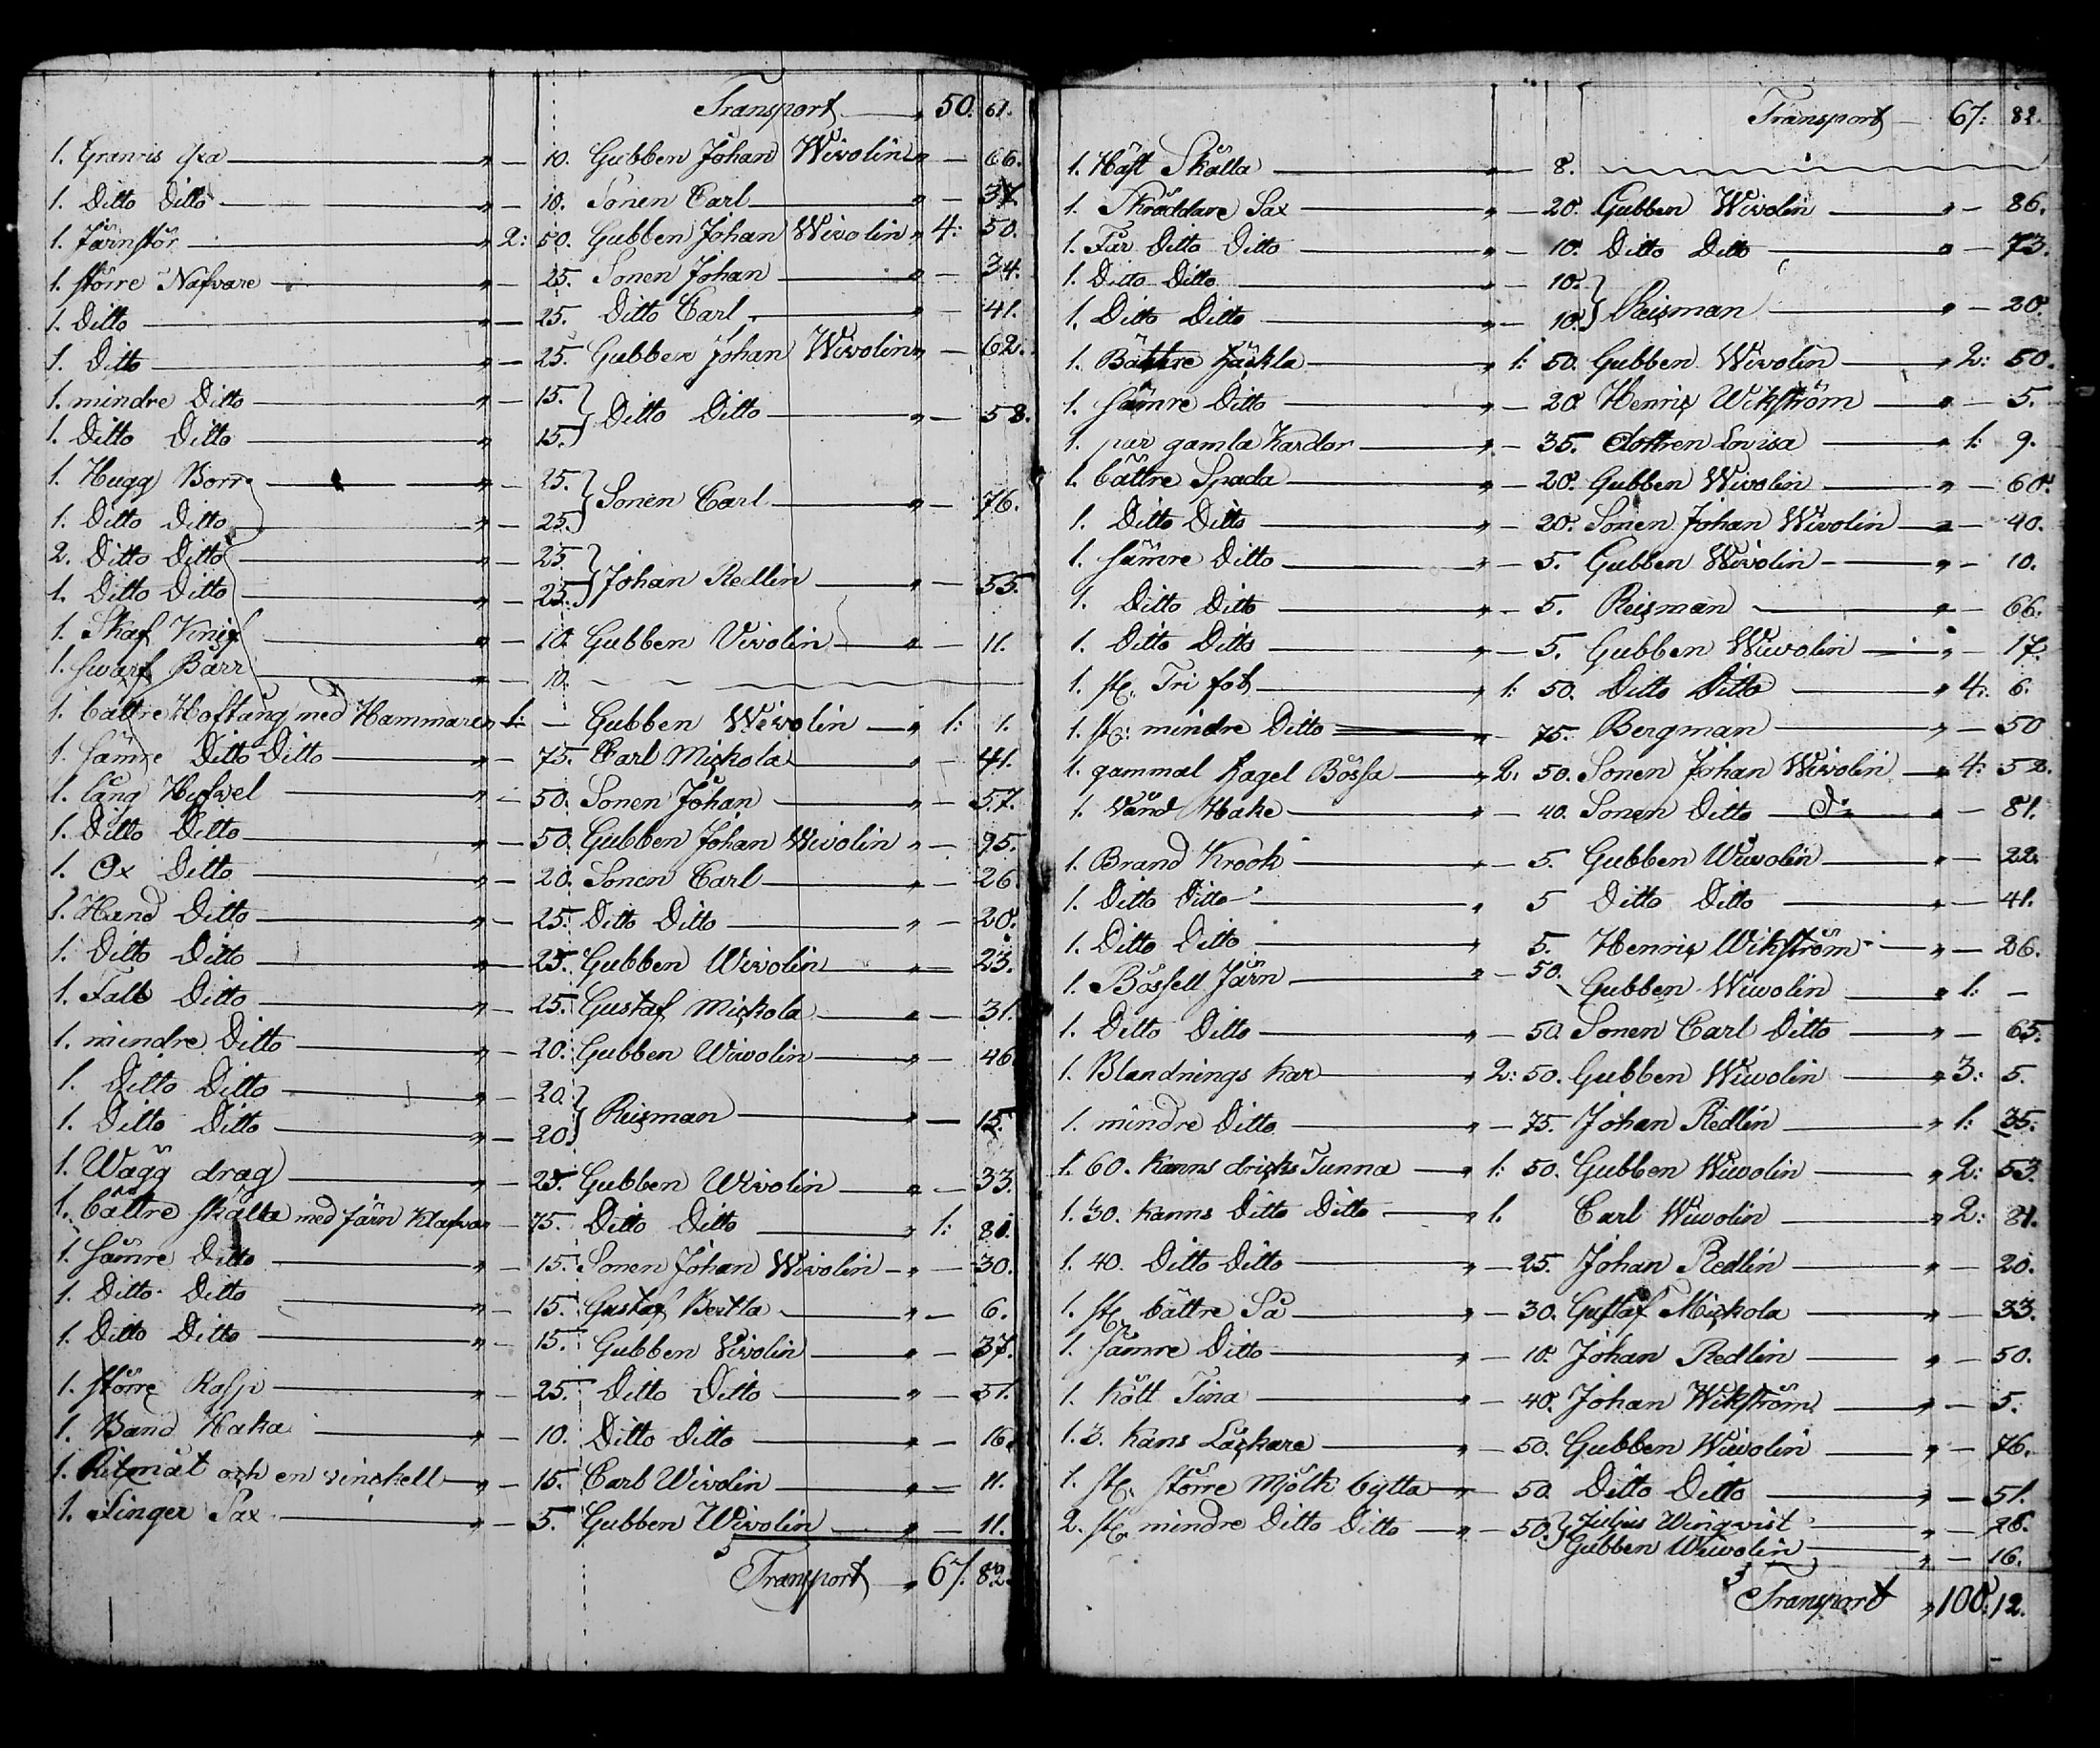 Transport „ 50. 61.
1. Granris yxa „ — 10. Gubben Johan Wivolin „ — 66.
1. Ditto Ditto „ — 10. Sonen Carl „ — 37.
1. Järnstör „ 2: 50. Gubben Johan Wivolin „ 4: 50.
1. större Nafvare „ — 25. Sonen Johan „ — 34.
1. Ditto „ — 25. Ditto Carl „ — 41.
1. Ditto „ — 25. Gubben Johan Wivolin „ — 62.
1. mindre Ditto „ — 15. } Ditto Ditto „ — 58.
1. Ditto Ditto „ 15. }
1. Hugg Borr „ — 25. } Sonen Carl „ — 76.
1. Ditto Ditto „ — 25. }
2. Ditto Ditto „ — 25. } Johan Redlin „ — 55.
1. Ditto Ditto „ — 25. }
1. Skaf Knif „ — 10. Gubben Vivolin „ — 11.
1. Swarf Barr „ — 10.
1. battre Hoftång med Hammare „ 1: — Gubben Wivolin „ 1: 1.
1. sämre Ditto Ditto „ — 75. Carl Mickola „ — 41.
1. lång Hyfwel „ — 50. Sonen Johan „ — 57.
1. Ditto Ditto „ — 50. Gubben Johan Wivolin „ — 95.
1. Ox Ditto „ — 20. Sonen Carl „ — 26.
1. Hand Ditto „ — 25. Ditto Ditto „ — 20.
1. Ditto Ditto „ — 25. Gubben Wivolin „ — 23.
1. Falb Ditto „ — 25. Gustaf Mickola „ — 31.
1. mindre Ditto „ — 20. Gubben Wivolin „ — 46.
1. Ditto Ditto „ — 20. } Reisman „ — 15.
1. Ditto Ditto „ — 20. }
1. Wägg drag „ — 25. Gubben Wivolin „ — 33.
1. bättre skälla med Järn Klafvar — 75. Ditto Ditto „ 1: 80.
1. sämre Ditto „ — 15. Sonen Johan Wivolin „ — 30.
1. Ditto Ditto „ — 15. Gustaf Bertla „ — 6.
1. Ditto Ditto „ — 15. Gubben Vivolin „ — 37.
1. större Rasp „ — 25. Ditto Ditto „ — 51.
1. Band Haka „ — 10. Ditto Ditto „ — 16.
1. Ritmåt och en vinckell „ — 15. Carl Wivolin „ — 11.
1. Finger Sax „ — 5. Gubben Wivolin „ — 11.
Transport „ 67. 82.
Transport — 67: 82.
1. Häst Skälla „ — 8.
1. Skräddare Sax „ — 20. Gubben Wivolin „ — 86.
1. Får Ditto Ditto „ — 10. Ditto Ditto „ — 73.
1. Ditto Ditto „ — 10. } Reisman „ — 20.
1. Ditto Ditto „ — 10. }
1. Bättre häckla „ 1: 50. Gubben Wivolin „ 2: 50.
1. sämre Ditto „ — 20. Henric Wikström „ — 5.
1. par gamla Kardor „ — 35. dottren Lovisa „ 1: 9.
1. bättre Spada „ — 20. Gubben Wivolin „ — 60.
1. Ditto Ditto „ — 20. Sonen Johan Wivolin „ — 40.
1. sämre Ditto „ — 5. Gubben Wivolin „ — 10.
1. Ditto Ditto „ — 5. Reisman „ — 66.
1. Ditto Ditto „ — 5. Gubben Wiwolin „ — 17.
1. st. Tri fot „ 1: 50. Ditto Ditto „ 4: 6.
1. st: mindre Ditto „ 75. Bergman „ — 50
1. gammal hagel Bössa „ 2: 50. Sonen Johan Wivolin „ 4: 52.
1. Vänd Hake „ — 40. Sonen Ditto Do „ — 81.
1. Brand Krook „ — 5. Gubben Wiwolin „ — 22.
1. Ditto Ditto „ 5 Ditto Ditto „ — 41.
1. Ditto Ditto „ 5. Henric Wikström „ — 26.
1. Bössell Järn „ — 50. Gubben Wiwolin „ 1: —
1. Ditto Ditto „ — 50. Sonen Carl Ditto „ — 65.
1. Blandnings kar „ 2: 50. Gubben Wiwolin „ 3: 5.
1. mindre Ditto „ — 75. Johan Redlin „ 1: 35.
1. 60. Kanns dricks Tunna „ 1: 50. Gubben Wiwolin „ 2: 53.
1. 30. kanns Ditto Ditto „ 1. Carl Wiwolin „ 2: 81.
1. 40. Ditto Ditto „ — 25. Johan Redlin „ — 20.
1. st. bättre Så „ — 30. Gustaf Mickola „ — 33.
1. sämre Ditto „ — 10. Johan Redlin „ — 50.
1. kött Tina „ — 40. Johan Wikström „ — 5.
1. 3. kans Läckare „ — 50. Gubben Wiwolin „ — 76.
1. st. större Mjölk bytta „ — 50. Ditto Ditto „ — 51.
2. st. mindre Ditto Ditto „ — 50. } Julius Winqvist „ — 26.
Gubben Wiwolin „ — 16.
Transport „ 100. 12.